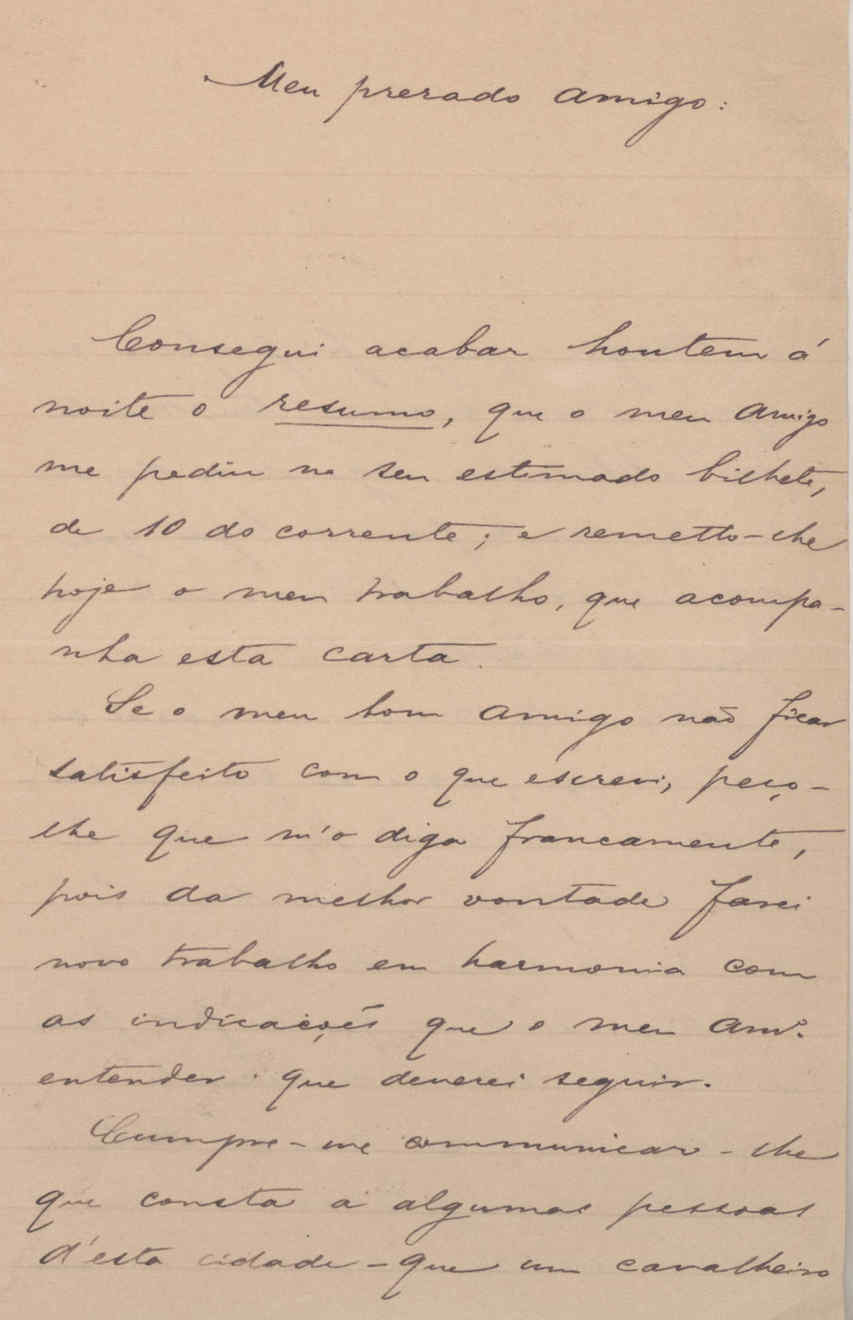 Meu prezado amigo:
Consegui acabar hontem á
noite o resumo, que o meu amigo
me pediu no seu estimado bilhete,
de 10 do corrente; e remetto-lhe
hoje o meu trabalho, que acompa-
nha esta carta.
Se o meu bom amigo não ficar
satisfeito com o que escrevi, peço-
lhe que m'o diga francamente,
pois da melhor vontade farei
novo trabalho em harmonia com
as indicações que o meu am.º
entender que deverei seguir.
Cumpre-me communicar-lhe
que consta a algumas pessoas
d'esta cidade - que um cavalheiro